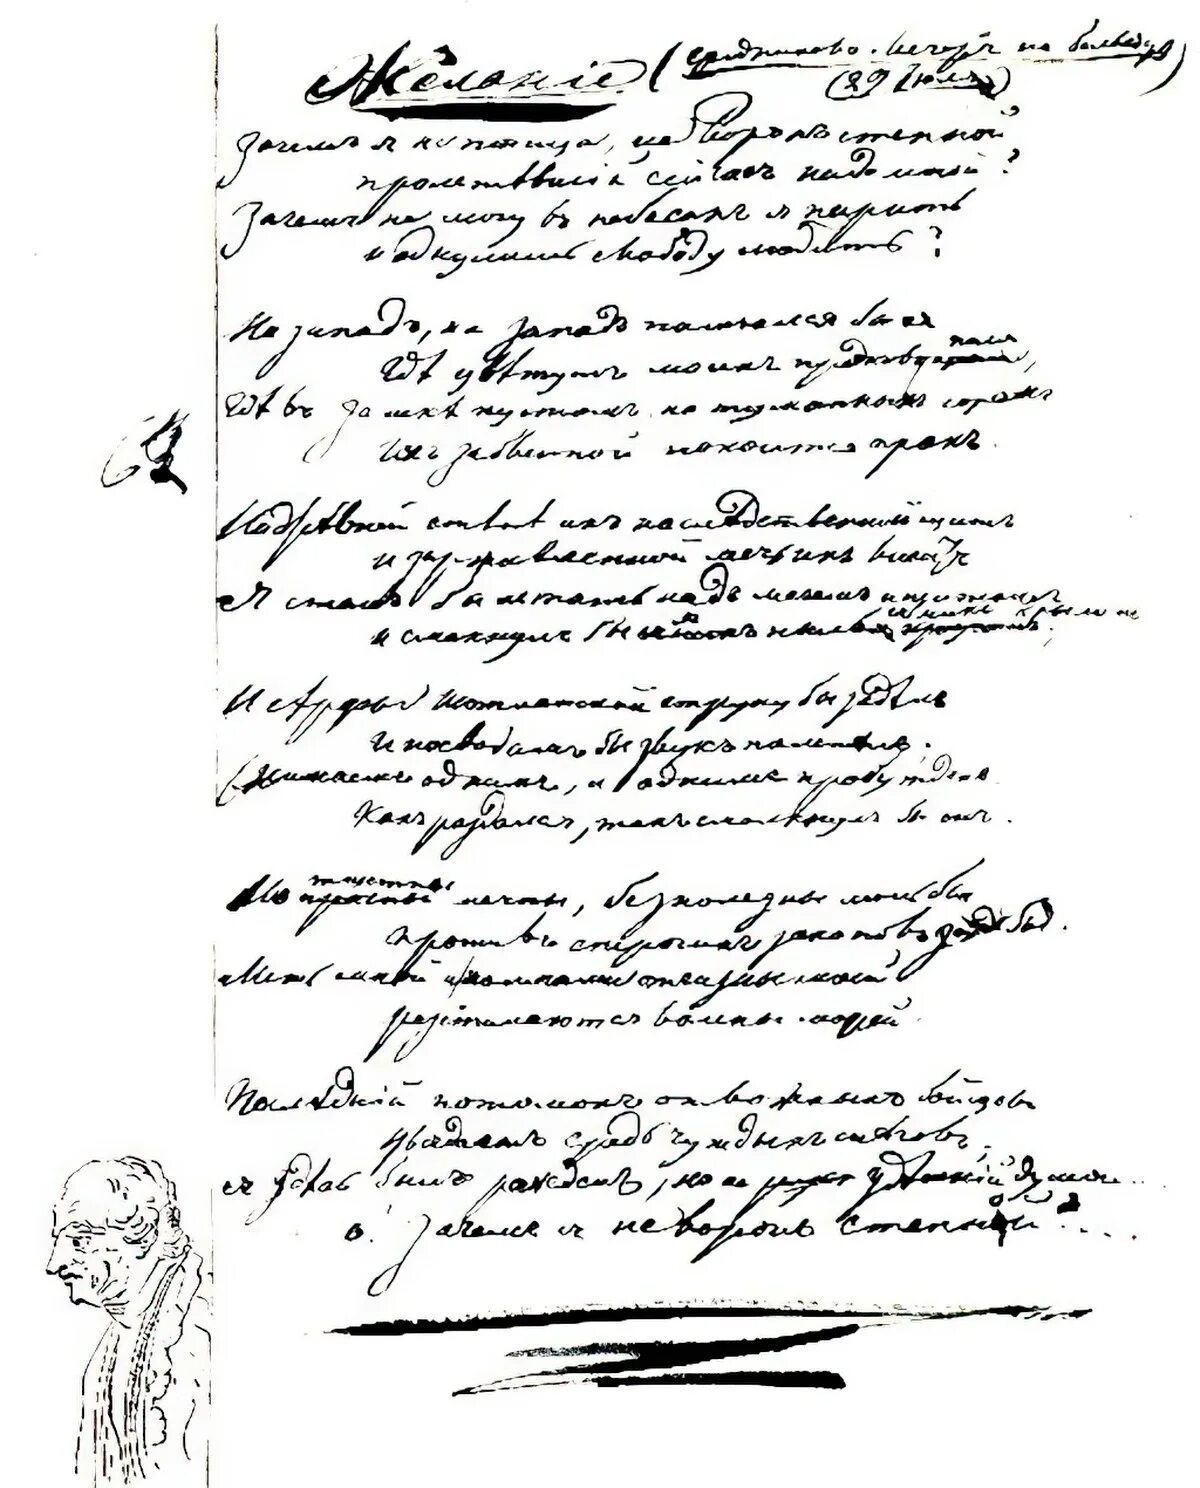 Желаніе (Средниково. Вечеръ на бельведерѣ)
(29 Іюля)
Зачемъ я не птица, не воронъ степной
пролетѣвшій сейчасъ надо мной?
Зачемъ не могу въ небесахъ я парить
и одну лишь свободу любить?
На западъ, на западъ помчался бы я
Гдѣ цвѣтутъ моихъ предковъ поля,
Гдѣ въ замкѣ пустомъ, на туманныхъ горахъ
Ихъ забвенной покоится прахъ.
На древней стѣнѣ ихъ наслѣдственный щитъ
и заржавленной мечь ихъ виситъ
Я сталъ бы летать надъ мечомъ и щитомъ
и смахнулъ бы я пыль съ нихъ крыломъ;
И Арфы Шотландской струну бы задѣлъ
И по сводамъ бы звукъ полетѣлъ.
Внимаемъ однимъ, и однимъ пробужденъ
Какъ раздался, такъ смолкнулъ бы онъ.
Но тщетны мечты, безполезны мольбы
Противъ строгихъ законовъ судьбы.
Межъ мной и холмами отчизны моей
разстилаются волны морей
Послѣдній потомокъ отважныхъ бойцовъ
Увядаетъ средь чуждыхъ снѣговъ;
Я здѣсь былъ рожденъ, но не здѣшній душой...
о! зачемъ я не воронъ степной?....